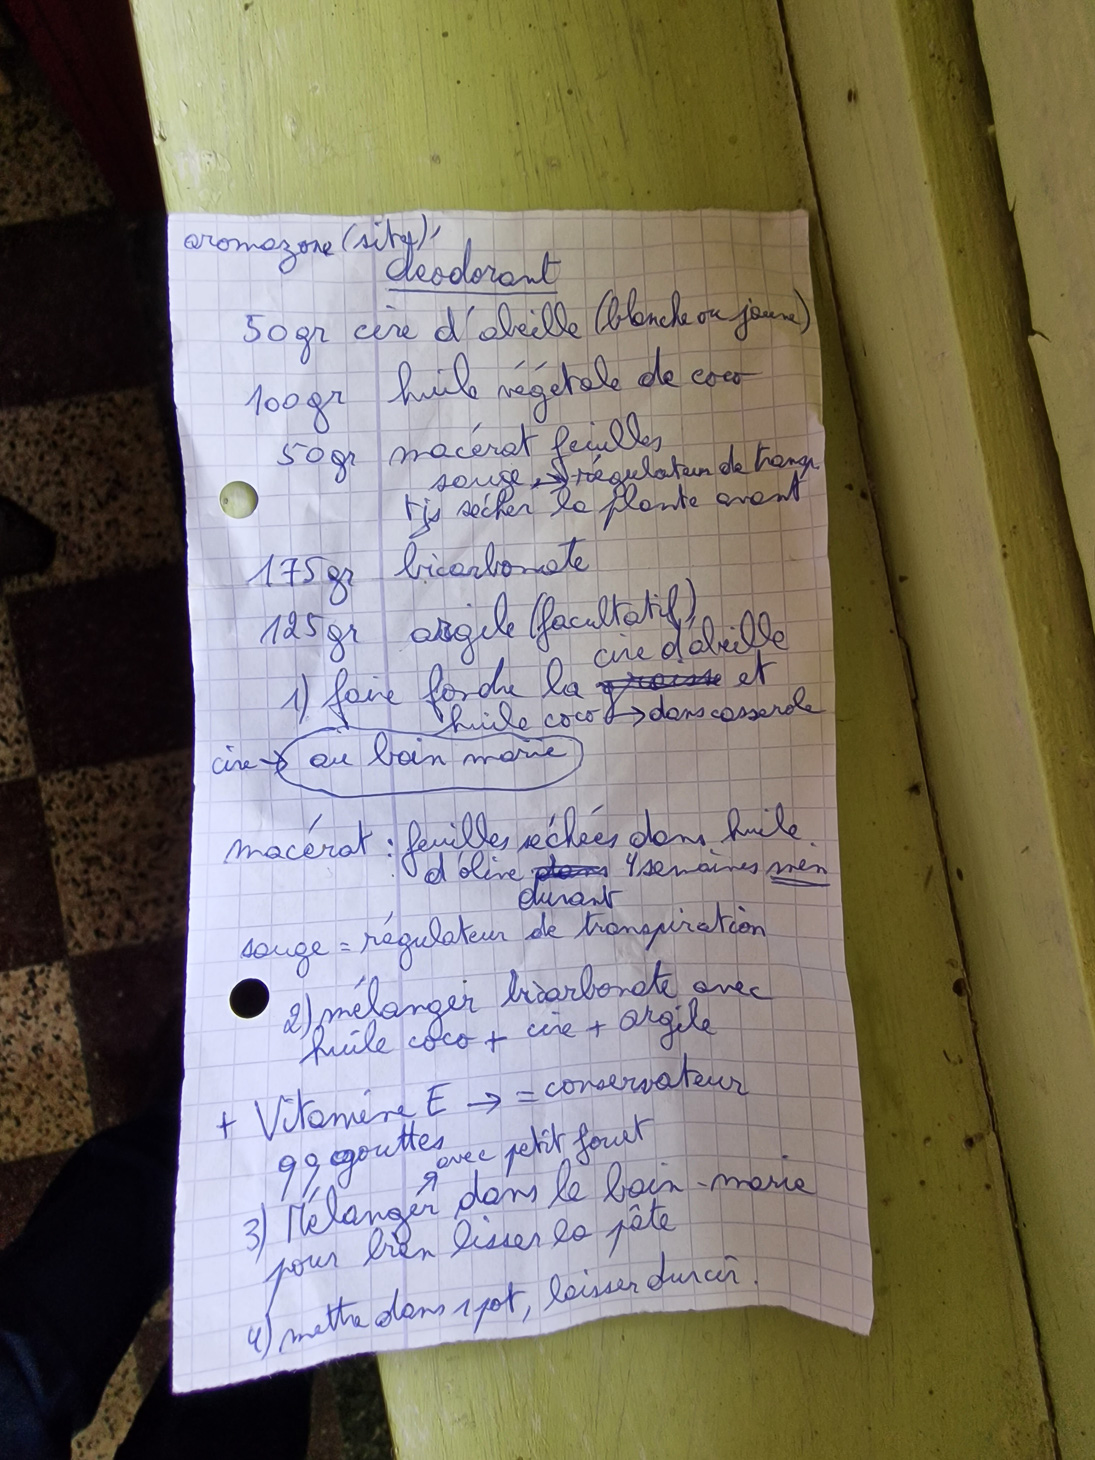 aromazone (site)
deodorant
50gr cire d'abeille (blanche ou jaune)
100gr huile végétale de coco
50gr macérat feuilles
sauge → régulateur de transp
tjs sécher la plante avant
175gr bicarbonate
125gr argile (facultatif)
cire d'abeille
1) faire fondre la graisse et
huile coco → dans casserole
cire → au bain marie
macérat : feuilles séchées dans huile
d'olive dans 4 semaines min
durant
sauge = régulateur de transpiration
2) mélanger bicarbonate avec
huile coco + cire + argile
+ Vitamine E → = conservateur
99 gouttes
avec petit fouet
3) Mélanger dans le bain-marie
pour bien lisser la pâte
4) mettre dans 1 pot, laisser durcir.